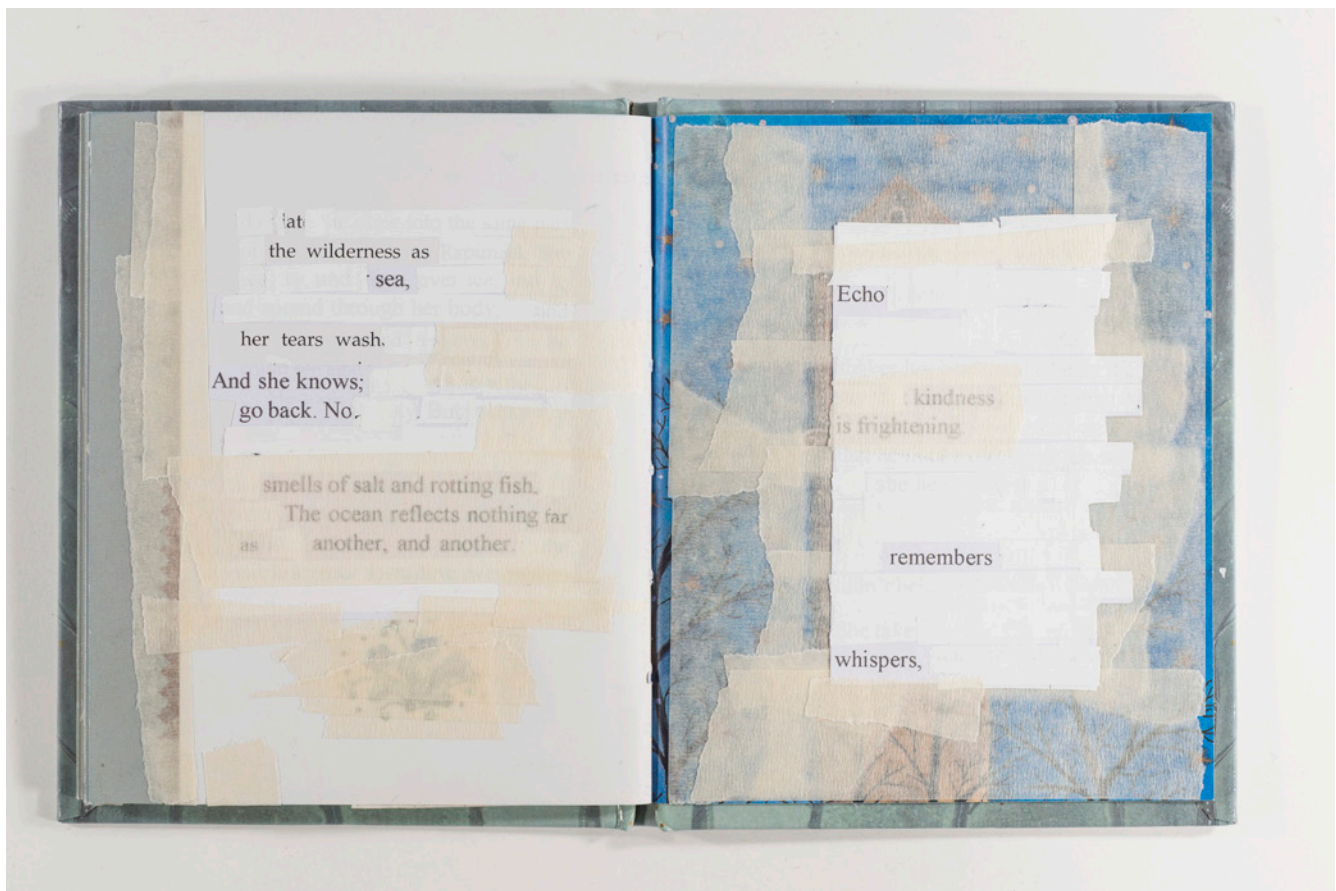 the wilderness as
sea,
her tears wash.
And she knows;
go back. No.
But
smells of salt and rotting fish.
The ocean reflects nothing far
as another, and another.
Echo
kindness
is frightening.
she he
remembers
She take
whispers,